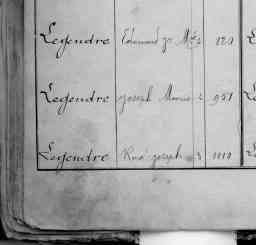 Legendre Edmond Jr M. 2 120
Legendre Joseph Marie 2 951
Legendre René Joseph 3 1110